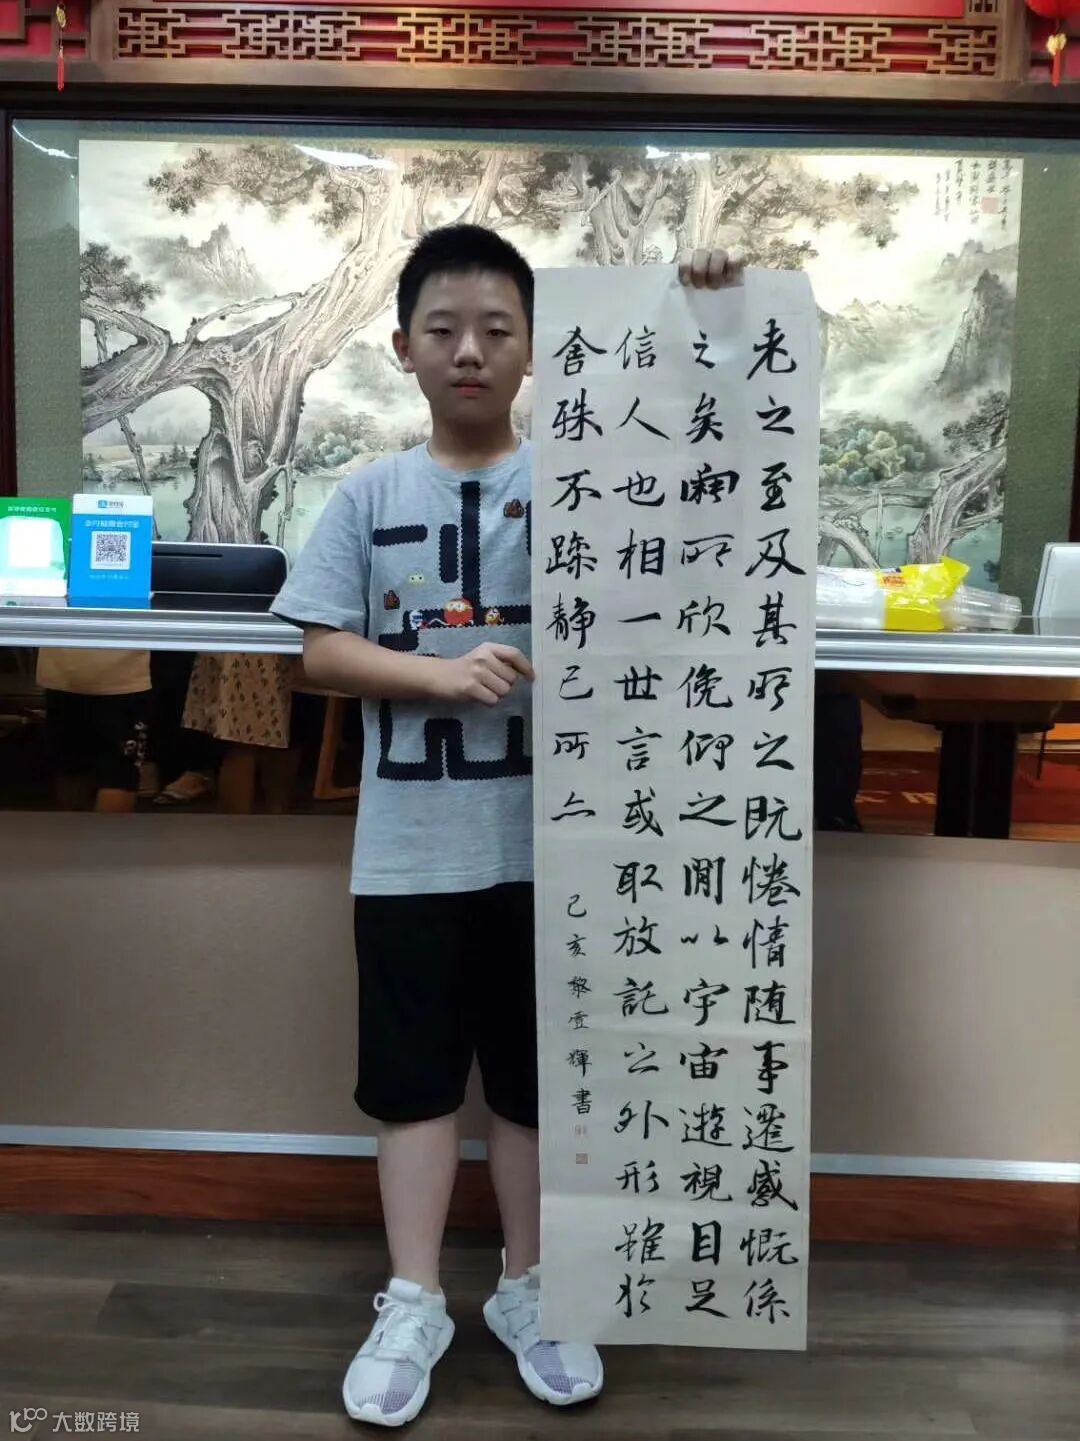 老之至及其所之既惓情随事遷感慨係
之矣向所欣俛仰之閒以宇宙遊視目足
信人也相一世言或取放託之外形雖於
舍殊不躁静已所亦
己亥黎輝書
支付宝
大数跨境